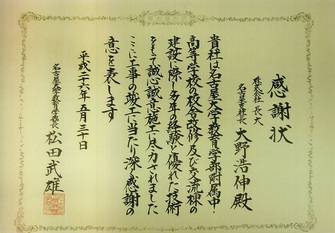 感謝状
株式会社 長大
名古屋支社長
大野浩伸殿
貴社は名古屋大学教育学部附属中・
高等学校の校舎改修及び交流棟の
建設に際し多年の経験と優れた技術
をもって誠心誠意施工に尽力されました
ここに工事の竣工に当たり深く感謝の
意を表します
平成二十六年五月三十日
名古屋大学教育学部長
松田武雄